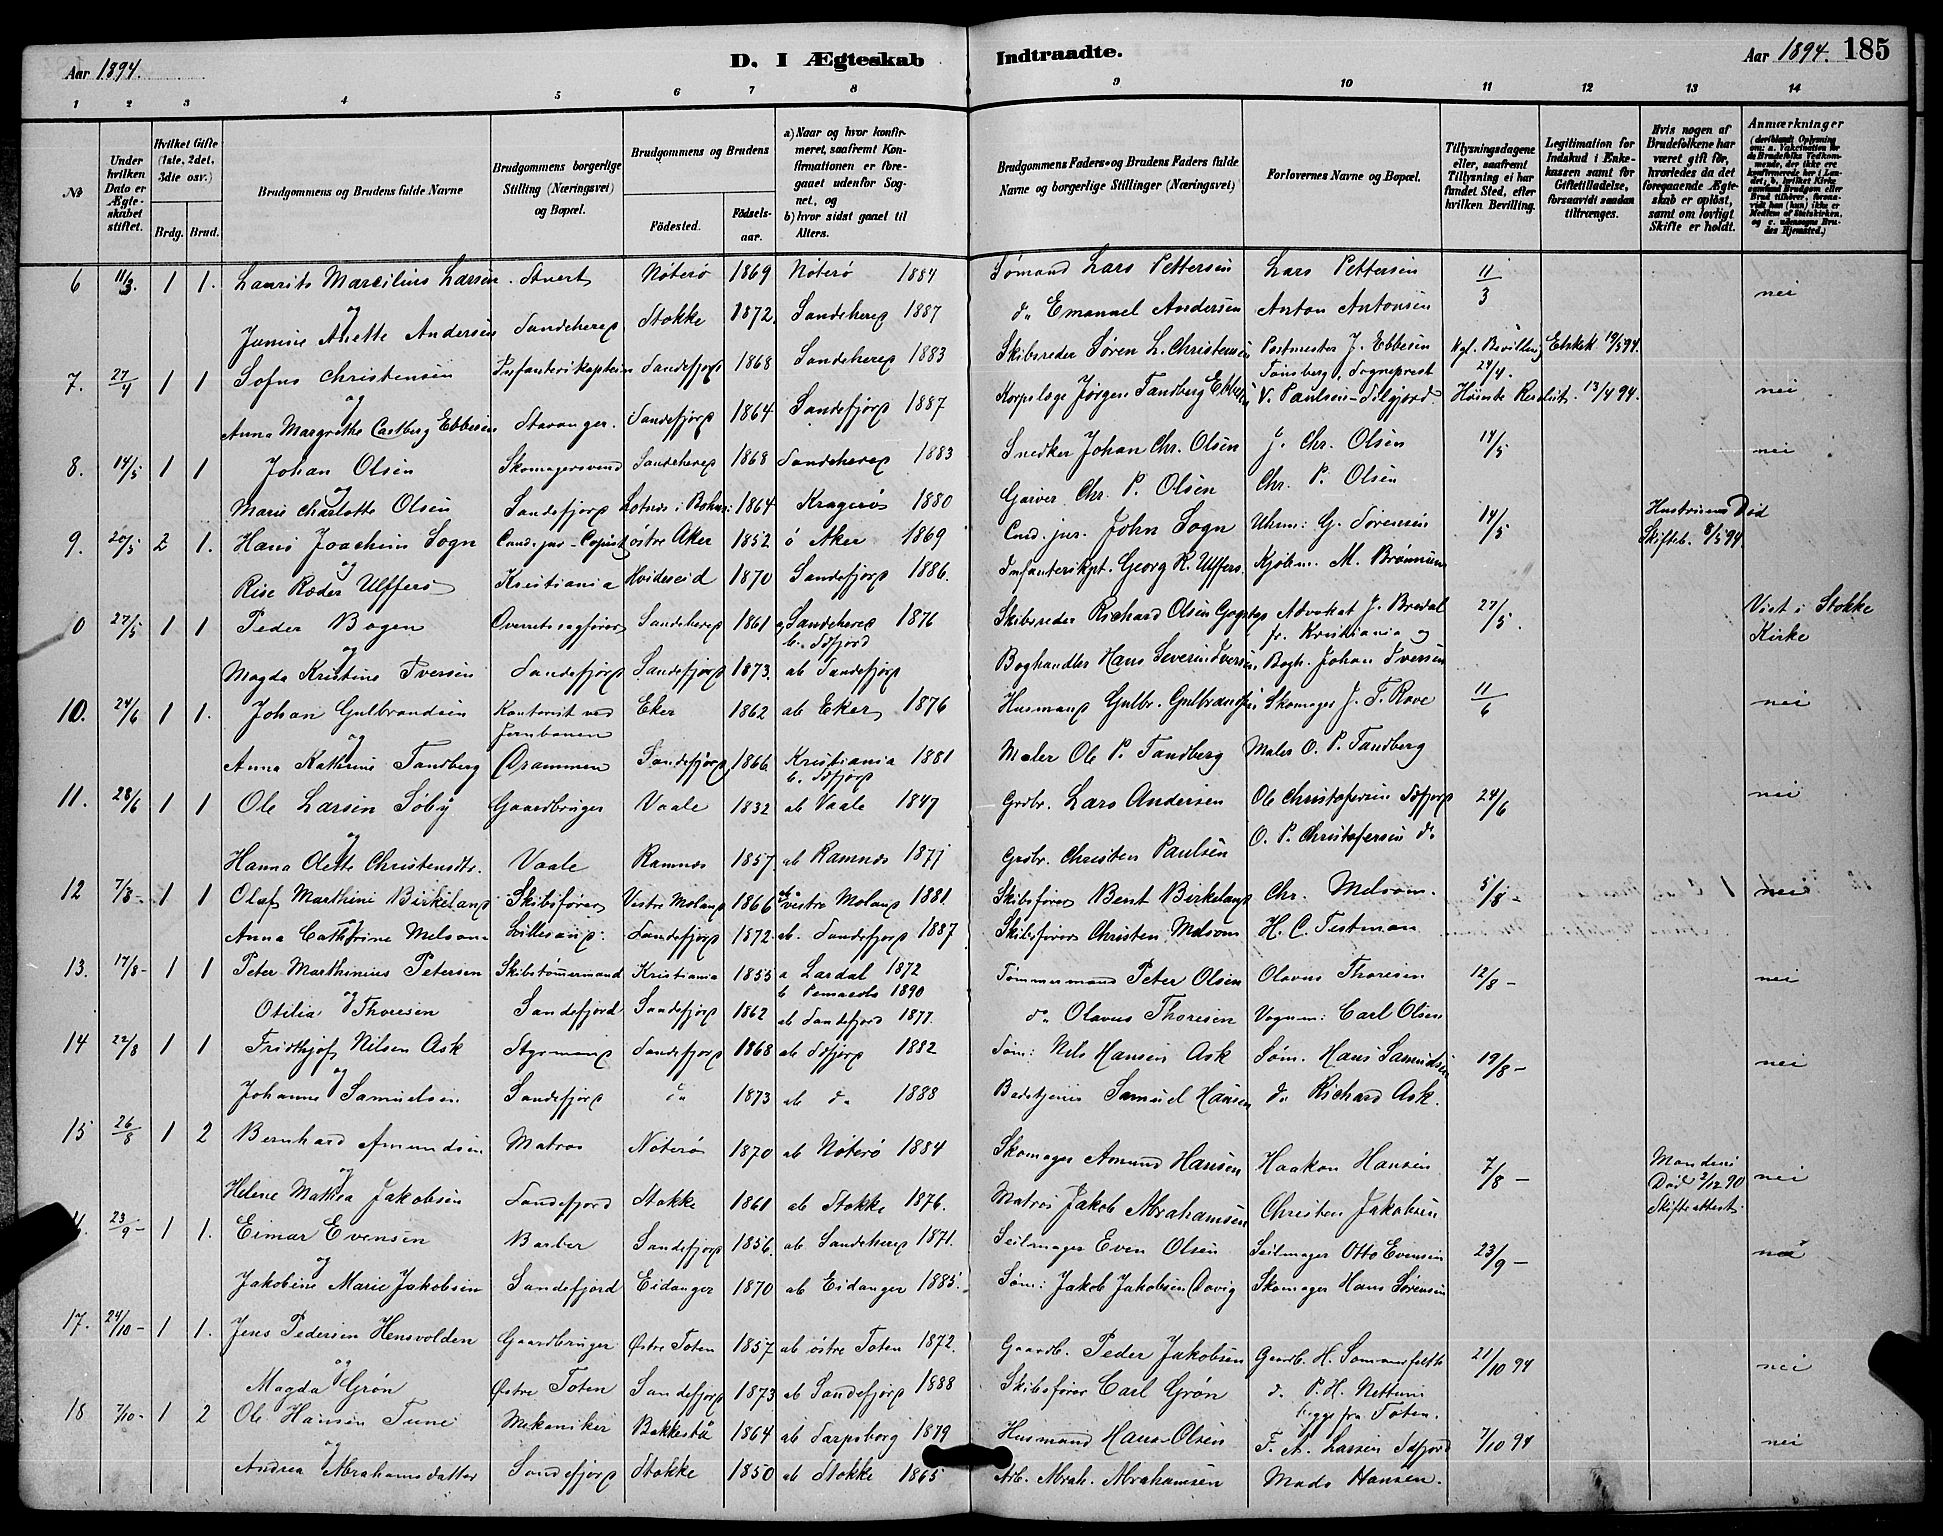 Aar 1894.
D. I Ægteskab Indtraadte.
Aar 1894. 185
1 2 3 4 5 6 7 8 9 10 11 12 13 14
No
Under hvilken Dato er Ægteskabet stiftet.
Hvilket Gifte (1ste, 2det, 3die osv.)
Brdg. Brud.
Brudgommens og Brudens fulde Navne
Brudgommens borgerlige Stilling (Næringsvei) og Bopæl.
Brudgommens og Brudens
Fødested. Fødselsaar.
a) Naar og hvor konfirmeret, saafremt Konfirmationen er foregaaet udenfor Sognet, og
b) hvor sidst gaaet til Alters.
Brudgommens Faders og Brudens Faders fulde Navne og borgerlige Stillinger (Næringsvei)
Forlovernes Navne og Bopæl.
Tillysningsdagene eller, saafremt Tillysning ei har fundet Sted, efter hvilken Bevilling.
Legitimation for Indskud i Enkekassen samt for Giftetilladelse, forsaavidt saadan tiltrænges.
Hvis nogen af Brudefolkene har været gift før, hvorledes da det foregaaende Ægteskab er opløst, samt om lovligt Skifte er holdt.
Anmærkninger
6 11/3. 1 1. Laurits Marcilius Larsen Stuert Nøterø 1869 Nøterø 1884 Sømand Lars Pettersen Lars Pettersen 11/3 nei
og
Junine Anette Andersen Sandeherep Stokke 1872. Sandeherep 1887 do Emanuel Andersen Anton Antonsen
7. 27/4 1 1 Sofus Christensen Infanterikaptein Sandefjord 1868 Sandeherep 1883 Skibsreder Søren L. Christensen Postmester J. Ebbesen Kgl. Bevilling Elskek. 19/5 94.
Tønsberg, Sogneprest 24/4. nei
og
Anna Margrethe Castberg Ebbesen Stavanger. Sandefjord 1864 Sandefjord 1887 Korpslæge Jørgen Tandberg Ebbesen V. Paulsen - Silgjord. Høieste Resolut. 13/4 94.
8. 14/5 1 1 Johan Olsen Skomagersvend Sandeherep 1868 Sandeherep 1883 Snedker Johan Chr. Olsen J. Chr. Olsen 14/5 nei
og
Marie Charlotte Olsen Sandefjord 1864 Kragerø 1880 Garver Chr. P. Olsen Chr. P. Olsen
9. 20/5 2 1. Hans Joachim Sogn Cand. jur. - Copist østre Aker 1852 ø Aker 1869 Cand. jur. John Sogn Uhrm: G. Sørensen 14/5 Hustruens Død
Skifteb. 8/5 94
og
Rise Ræder Ulffers Kristiania Hvideseid 1870 Sandefjord 1886. Infanterikpt. Georg R. Ulffers. Kjøbm. M. Brønnum
0 27/5 1 1 Peder Bogen Overretssagfører Sandeherep 1861 a Sandeherep 1876 Skibsreder Richard Olsen Gogstap Advokat J. Bredal 27/5. Viet i Stokke
b. Sdfjord fr. Kristiania og Kirke
og
Magda Kristine Iversen Sandefjord Sandefjord 1873. ab Sandefjord Boghandler Hans Severin Iversen Bogh. Johan Iversen
10. 24/6 1 1. Johan Gulbrandsen Kontorist ved Eker 1862 ab Eker 1876 Husmand Gulbr. Gulbrandsen Skomager J. T. Rove 11/6 nei
Jernbanen
og
Anna Kathrine Tandberg Drammen Sandefjord 1866 Kristiania 1881 Maler Ole P. Tandberg Maler O. P. Tandberg
b. Sdfjord
11. 28/6 1 1 Ole Larsen Søby Gaardbruger Vaale 1832 ab Vaale 1847 Grdbr. Lars Andersen Ole Christofersen Sdfjord 24/6 nei
O. P. Christofersen do
og
Hanna Olette Christensdtr. Vaale Ramnes 1857. ab Ramnes 1871 Grdbr. Christen Paulsen
12 7/8 - 1 1 Olaf Marthini Birkeland Skibsfører Vestre Moland 1866 ab vestre Moland 1881. Skibsfører Bent Birkeland Chr. Melsom. 5/8 - nei
Anna Cathrine Melsom Lillesand. Sandefjord 1872. ab. Sandefjord 1887 Skibsfører Christen Melsom H. C. Testman
13. 17/8 - 1 1 Peter Marthinius Petersen Skibstømmermand Kristiania 1855 a Lardal 1872 Tømmermand Peter Olsen Olavus Thoresen 12/8 - nei
b 1890
og
Otilia Thoresen Sandefjord Sandefjord 1862 ab Sandefjord 1877. do Olavus Thoresen Vognm: Carl Olsen
14 22/8 1 1 Fridthjof Nilsen Ask Styrmand Sandefjord 1868 ab Sdfjord 1882 Søm: Nils Hansen Ask Søm. Hans Samuelsen 19/8 - nei
og
Johanne Samuelsen Sandefjord do 1873 ab do 1888 Badetjener Samuel Hansen do Richard Ask.
15 26/8 1 2 Bernhard Amundsen Matros Nøterø 1870 ab Nøterø 1884 Skomager Amund Hansen Haakon Hansen 7/8 - Mandens nei
Død 2/12 90
og
Helene Mathea Jakobsen Sandefjord Stokke 1861 ab Stokke 1876. Matros Jakob Abrahamsen Christen Jakobsen Skifteattest.
23/9 - 1 1. Eimar Evensen Barber Sandefjord 1856. ab Sandeherep 1871. Seilmager Even Olsen Seilmager Otto Evensen 23/9 - nei
og
Jakobine Marie Jakobsen Sandefjord Eidanger 1870 ab Eidanger 1885. Søm: Jakob Jakobsen Dovig Skomager Hans Sørensen
17. 24/10 - 1 1. Jens Pedersen Hensvolden Gaardbruger Østre Toten 1857 ab østre Toten 1872. Gaardb. Peder Jakobsen Gaardb. H. Sommerfeldt 21/10 94 nei
og
Magda Grøn Østre Toten Sandefjord 1873 ab Sandefjord 1888 Skibsfører Carl Grøn do P. H. Nettum
begge fra Toten.
18 7/10 - 1 2 Ole Hansen Tune Mekaniker Bakkestø 1864 ab Sarpsborg 1879 Husmand Hans Olsen F. A. Larsen Sdfjord 7/10 94 nei
og
Andrea Abrahamsdatter Sandefjord Stokke 1850 ab Stokke 1865 Arb. Abrah. Abrahamsen Mads Hansen.